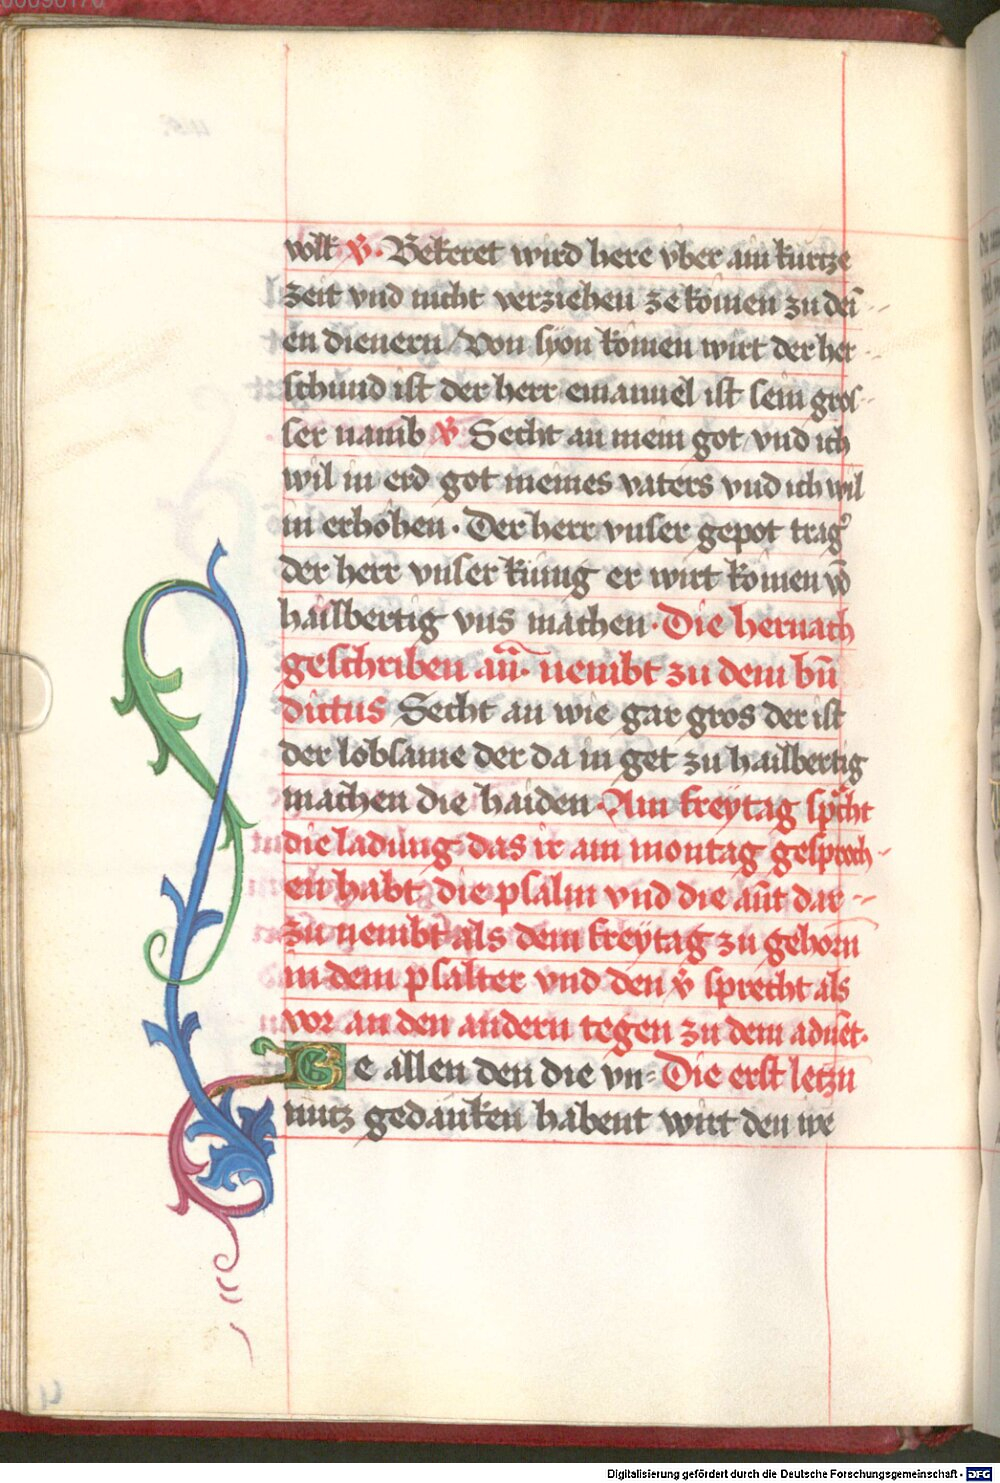 volk ℣. Bekeret wird here vber ain kurtze
zeit vnd nicht verziehen ze komen zu dei
en dienern / Von syon komen wirt der her
schund ist der herr emanuel ist sein gros
ser namb ℣ Secht an mein got vnd ich
wil in erd got meines vaters vnd ich wil
in erhöhen . Der herr vnser gepot trag
der herr vnser kunig er wirt komen vō
hailbertig vns machen . Die hernach
geschriben an̄. nembt zu dem bn̄
dictus Secht an wie gar gros der ist
der loblame der da in get zu hailbertig
machen die haiden . Am freytag spcht
die ladung das ir am montag gesproch
en habt die psalm vnd die ant dar
zu nembt als dem freytag zu gehorn
in dem psalter vnd den ℣ sprecht als
vor an den andern tegen zu dem aduet.
E e allen den die vn= Die erst letzn
nutz gedanken habent wirt den we
Digitalisierung gefördert durch die Deutsche Forschungsgemeinschaft - DFG